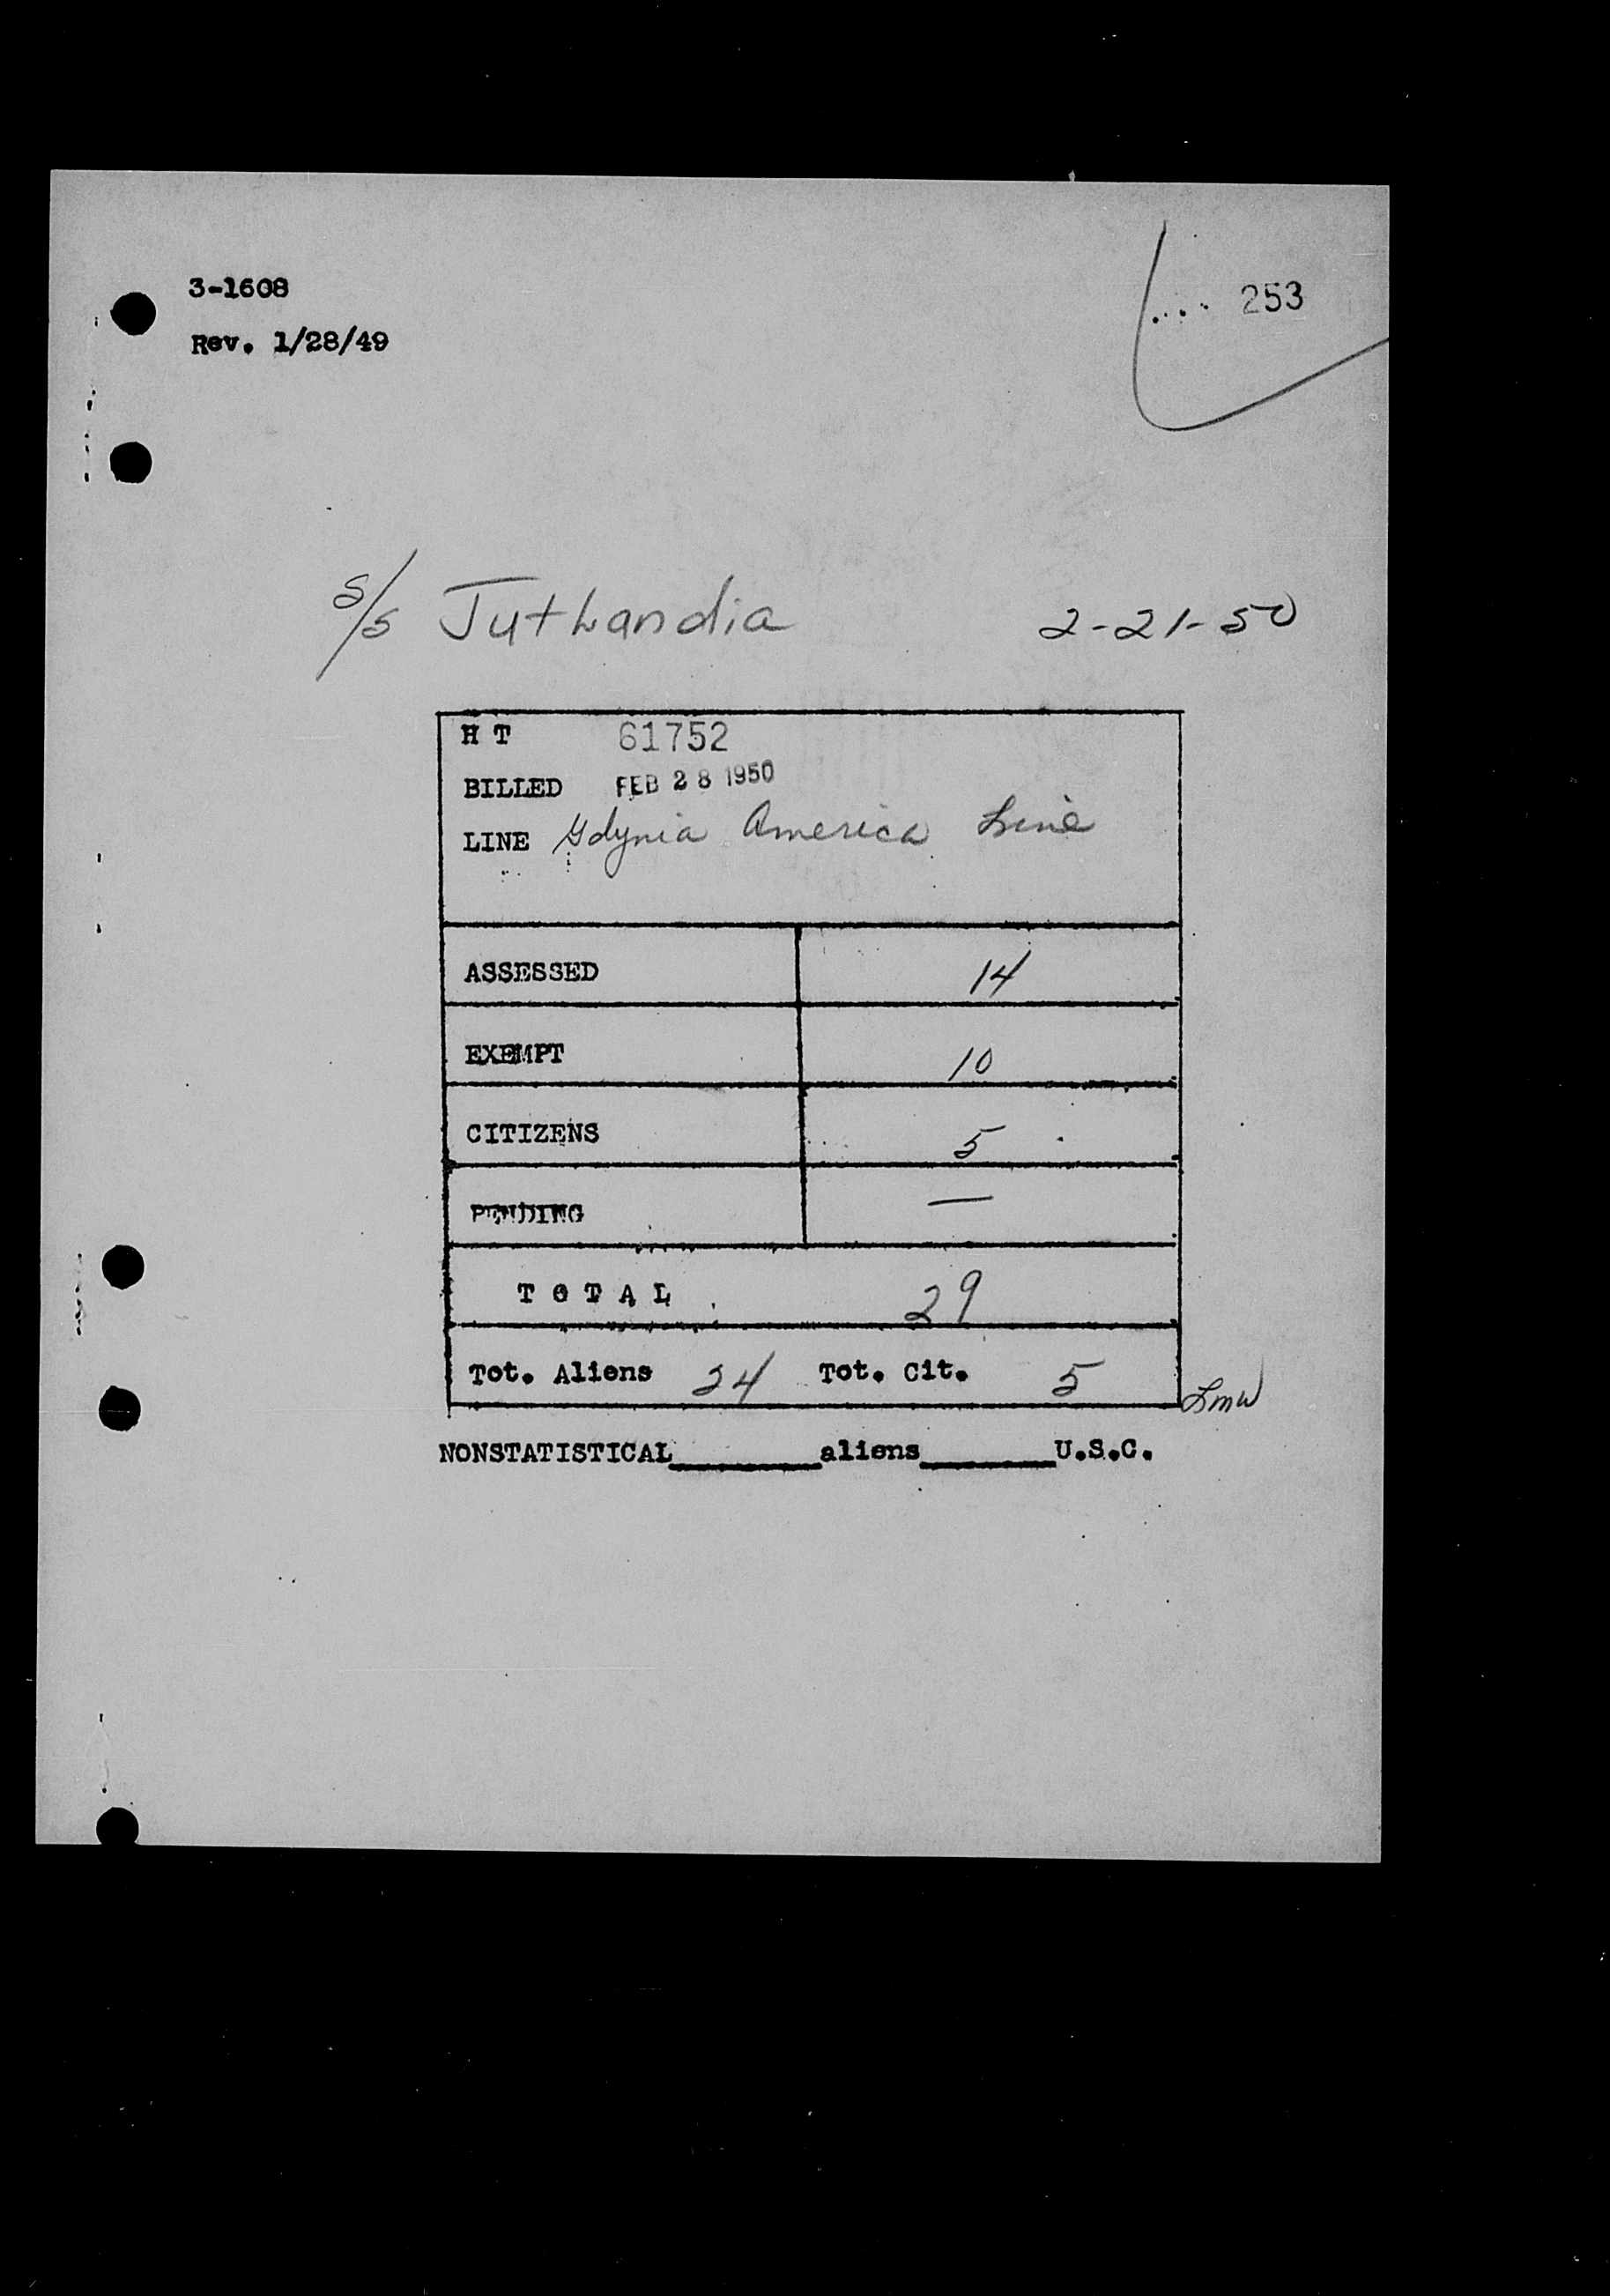 3-1608
253
Rev. 1/28/49
S/S Juthandia 2-21-50
H T 61752
BILLED FEB 28 1950
LINE Gdynia America Line
ASSESSED 14
EXEMPT 10
CITIZENS 5
PENDING —
TOTAL 29
Tot. Aliens 24 Tot. Cit. 5
Lmw
NONSTATISTICAL________aliens_______U.S.C.